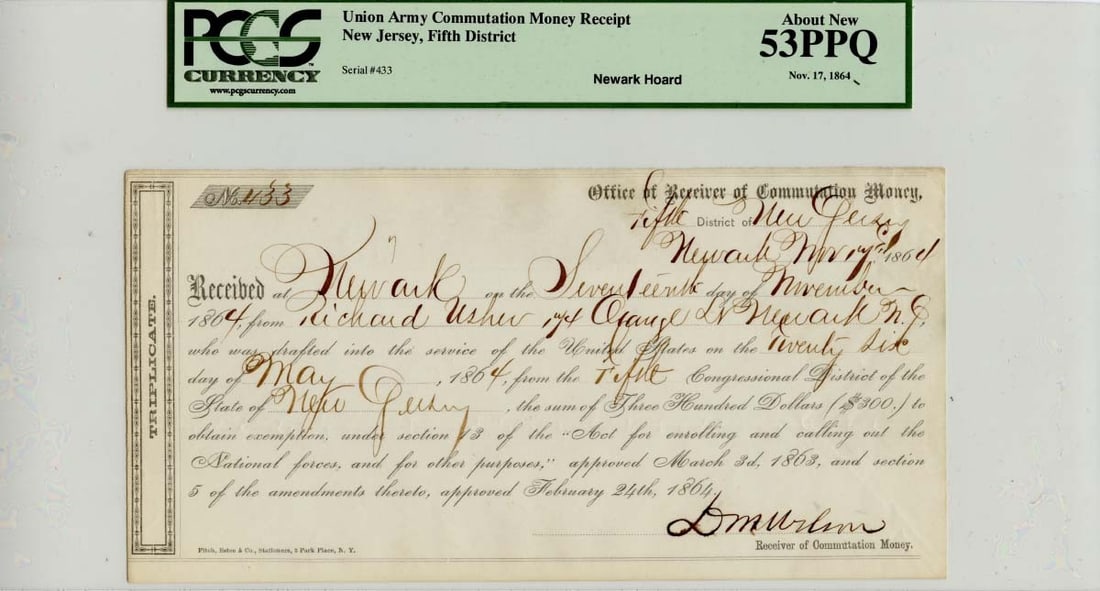 PCGS
CURRENCY
www.pcgscurrency.com
Union Army Commutation Money Receipt
New Jersey, Fifth District
Serial #433
Newark Hoard
About New
53PPQ
Nov. 17, 1864
TRIPLICATE.
No. 433
Office of Receiver of Commutation Money,
Fifth District of New Jersey
Newark Nov 17th 1864
Received at Newark on the Seventeenth day of November
1864, from Richard Usher 174 Orange St Newark N.J.
who was drafted into the service of the United States on the Twenty Six
day of May, 1864, from the Fifth Congressional District of the
State of New Jersey, the sum of Three Hundred Dollars ($300.) to
obtain exemption, under section 13 of the "Act for enrolling and calling out the
National forces, and for other purposes," approved March 3d, 1863, and section
5 of the amendments thereto, approved February 24th, 1864.
D M Wilson
Receiver of Commutation Money.
Fitch, Estee & Co., Stationers, 3 Park Place, N. Y.